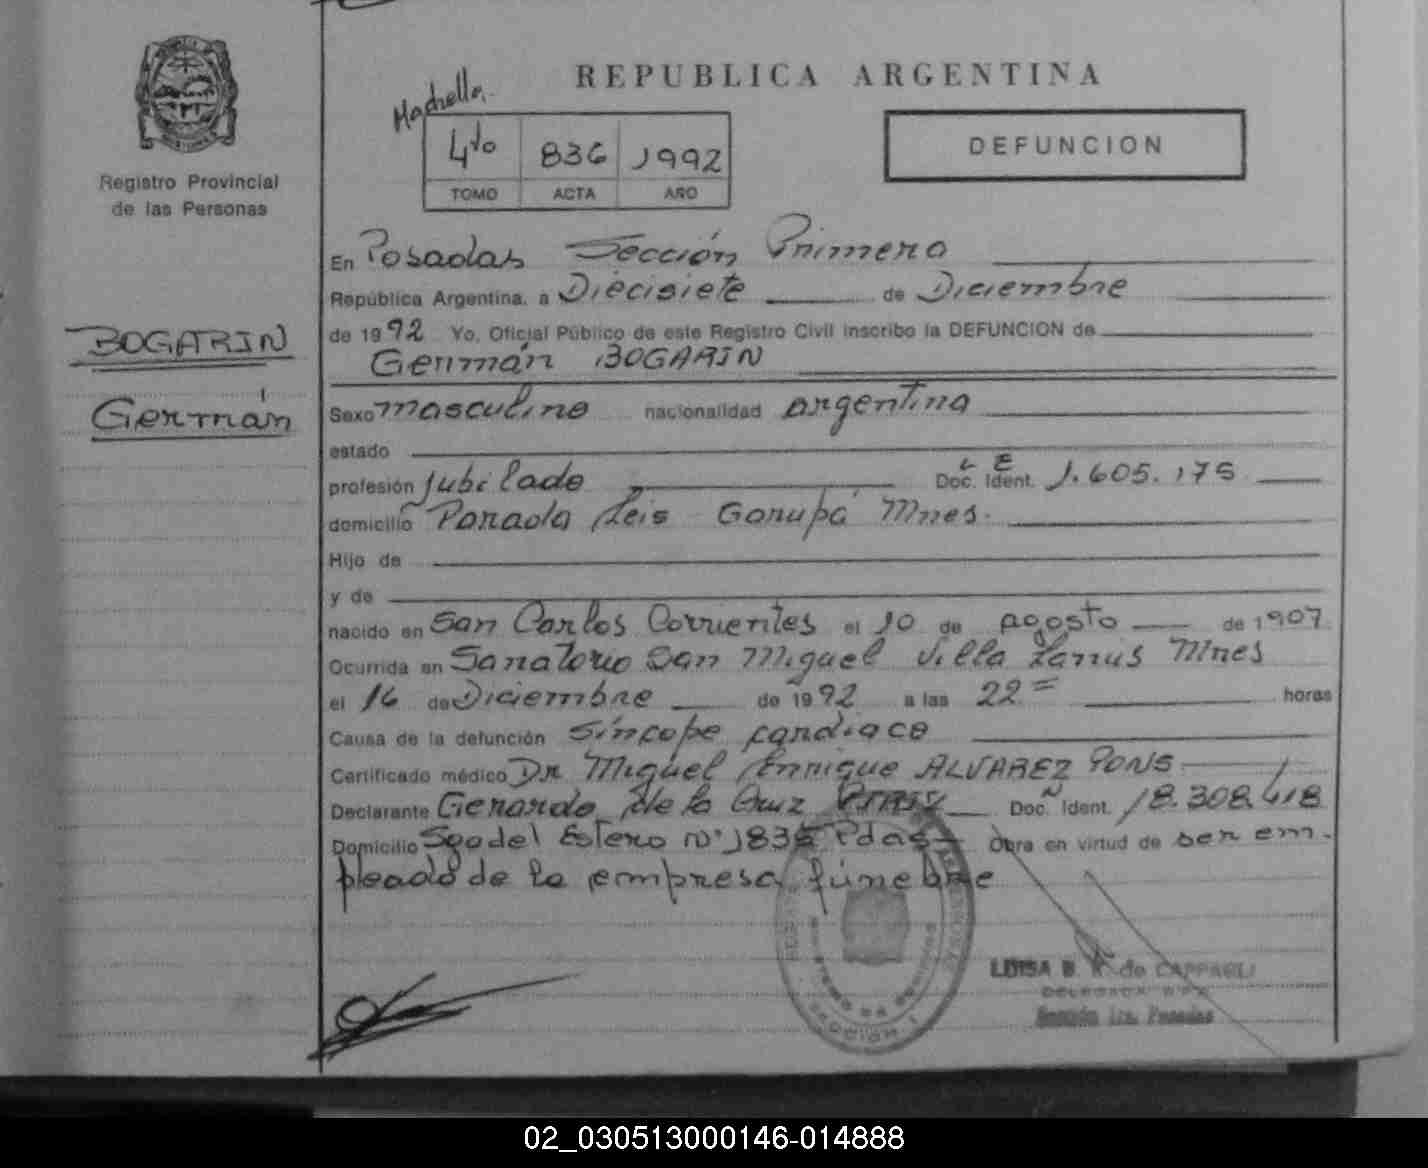 REPUBLICA ARGENTINA
4to 836 1992
TOMO ACTA AÑO
DEFUNCION
Registro Provincial
de las Personas
BOGARIN
Germán
En Posadas Sección Primera
República Argentina, a Diecisiete de Diciembre
de 1992 Yo, Oficial Público de este Registro Civil inscribo la DEFUNCION de
Germán BOGARIN
Sexo masculino nacionalidad argentina
estado
profesión jubilado Doc. Ident. L E 1.605.175
domicilio Parada Leis Garupá Mnes.
Hijo de
y de
nacido en San Carlos Corrientes el 10 de agosto de 1907
Ocurrida en Sanatorio San Miguel Villa Lanus Mnes
el 16 de Diciembre de 1992 a las 22= horas
Causa de la defunción Síncope cardiaco
Certificado médico Dr Miguel Enrique ALVAREZ PONS
Declarante Gerardo de la Cruz Doc. Ident. N 18.308.418
Domicilio Sgo del Estero Nº 1835 Pdas Obra en virtud de ser em-
pleado de la empresa fúnebre
LUISA B. de CAPPAGLI
Sección 1ra. Posadas
SECCION 1
02_030513000146-014888